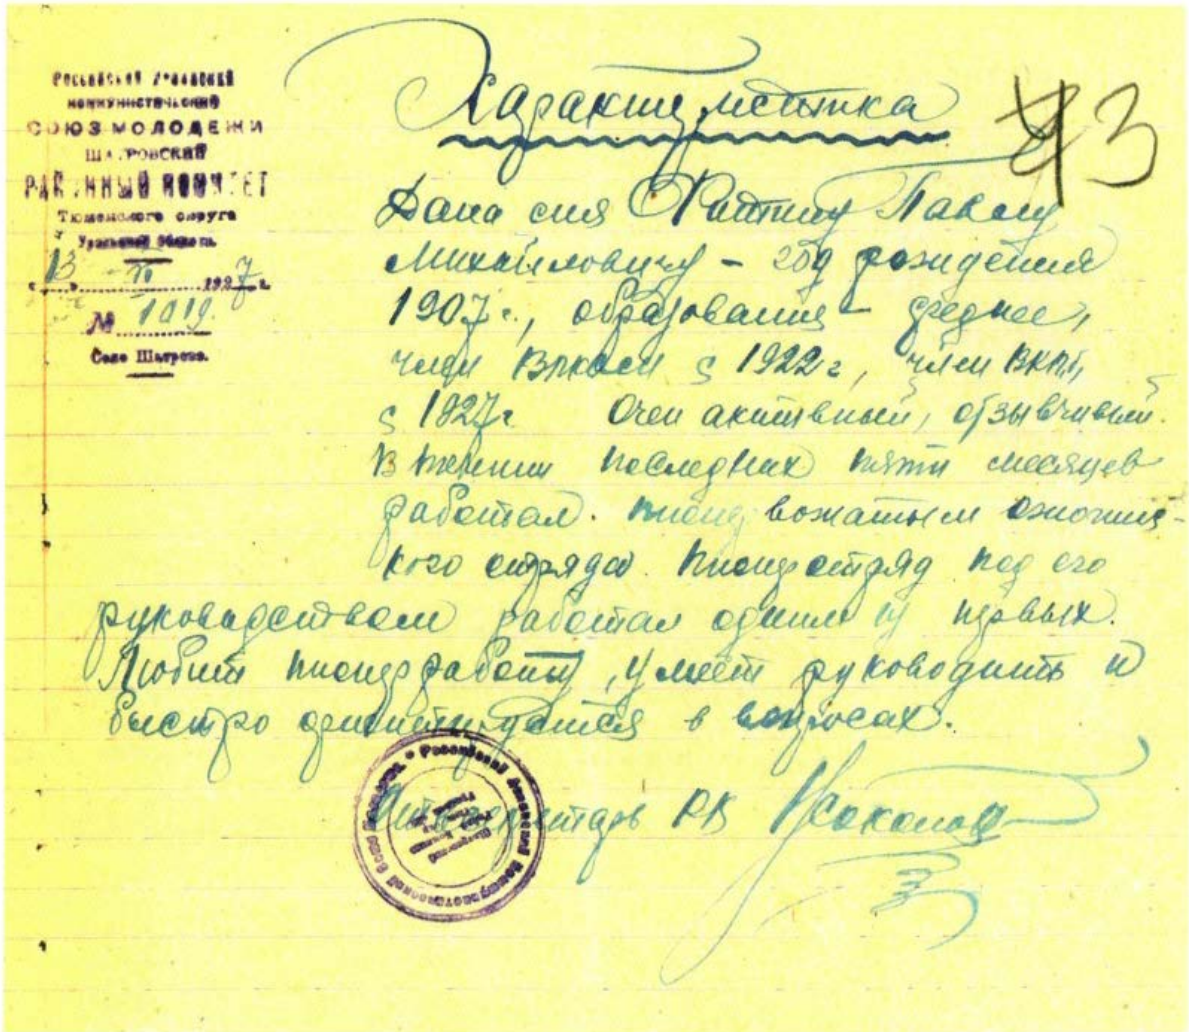 Российский Ленинский
коммунистический
СОЮЗ МОЛОДЕЖИ
ШАТРОВСКИЙ
РАЙОННЫЙ КОМИТЕТ
Тюменского округа
Уральской Области.
13 1927 г.
№ 1019.
Село Шатрово.
Характеристика
43
Дана сия Павлу
Михайловичу - год рождения
1907 г., образование - среднее,
член ВЛКСМ с 1922 г, член ВКП
с 1927 г Очен активный, отзывчивый.
В течении последних пяти месяцев
работал пионер вожатым
кого отряда. Пионеротряд под его
руководством работал одним из первых.
Любит пионерработу, умеет руководить и
быстро в вопросах.
Отв секретарь РК Соколов
Российский Ленинский Коммунистический Союз Молодежи